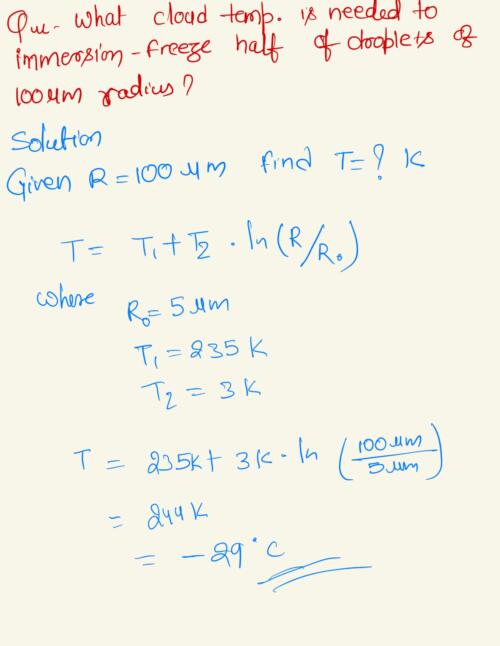 Que- What cloud temp. is needed to
immersion-freeze half of droplets of
100 μm radius?
Solution
Given R = 100 μm find T = ? K
T = T₁ + T₂ · ln (R/R₀)
where
R₀ = 5 μm
T₁ = 235 K
T₂ = 3 K
T = 235K + 3K · ln (100 μm / 5 μm)
= 244 K
= -29°C